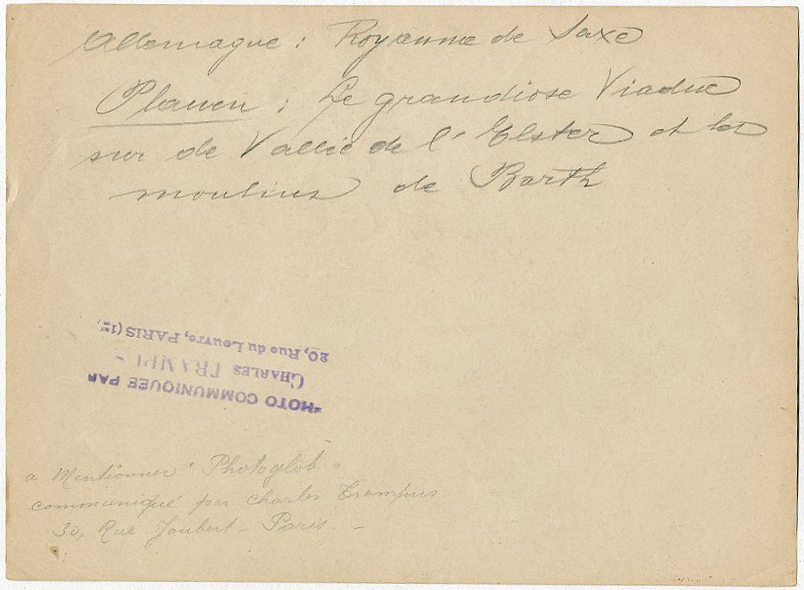 Allemagne : Royaume de Saxe
Plauen : Le grandiose Viaduc
sur de Vallée de l'Elster et les
moulins de Barth
PHOTO COMMUNIQUÉE PAR
CHARLES TRAMPU
20, Rue du Louvre, PARIS (1er)
a Mentionner "Photoglob"
communiqué par Charles Trampus
30, Rue Joubert - Paris. -